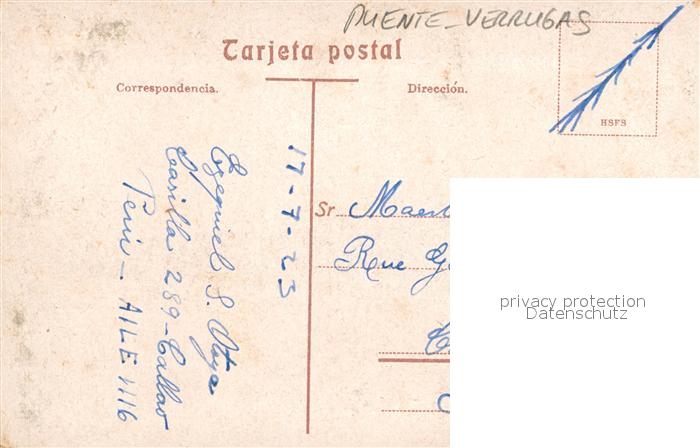 PUENTE-VERRUGAS
Tarjeta postal
Correspondencia.
Dirección.
HSFS
17-7-23
Ezequiel S. Otoya
Casilla 289-Callao
Perú - AILE 1116
Sr
Rue
privacy protection
Datenschutz